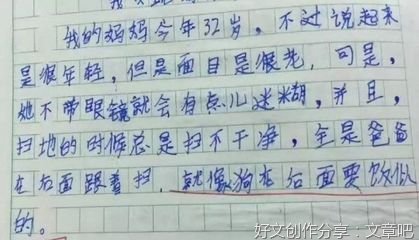 我的妈妈今年32岁，不过说起来
是很年轻，但是面目是很老，可是，
她不带眼镜就会有点儿迷糊，并且，
扫地的时候总是扫不干净，全是爸爸
在后面跟着扫，就像狗在后面要饭似
的。
好文创作分享：文章吧